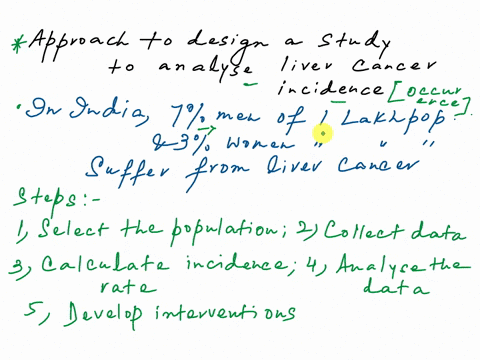 * Approach to design a study
to analyse liver cancer
incidence [occurrence].
• In India, 7% men of 1 Lakh pop.
& 3% women " " "
Suffer from liver cancer
Steps:-
1, Select the population; 2) Collect data
3, Calculate incidence rate; 4, Analyse the data
5, Develop interventions